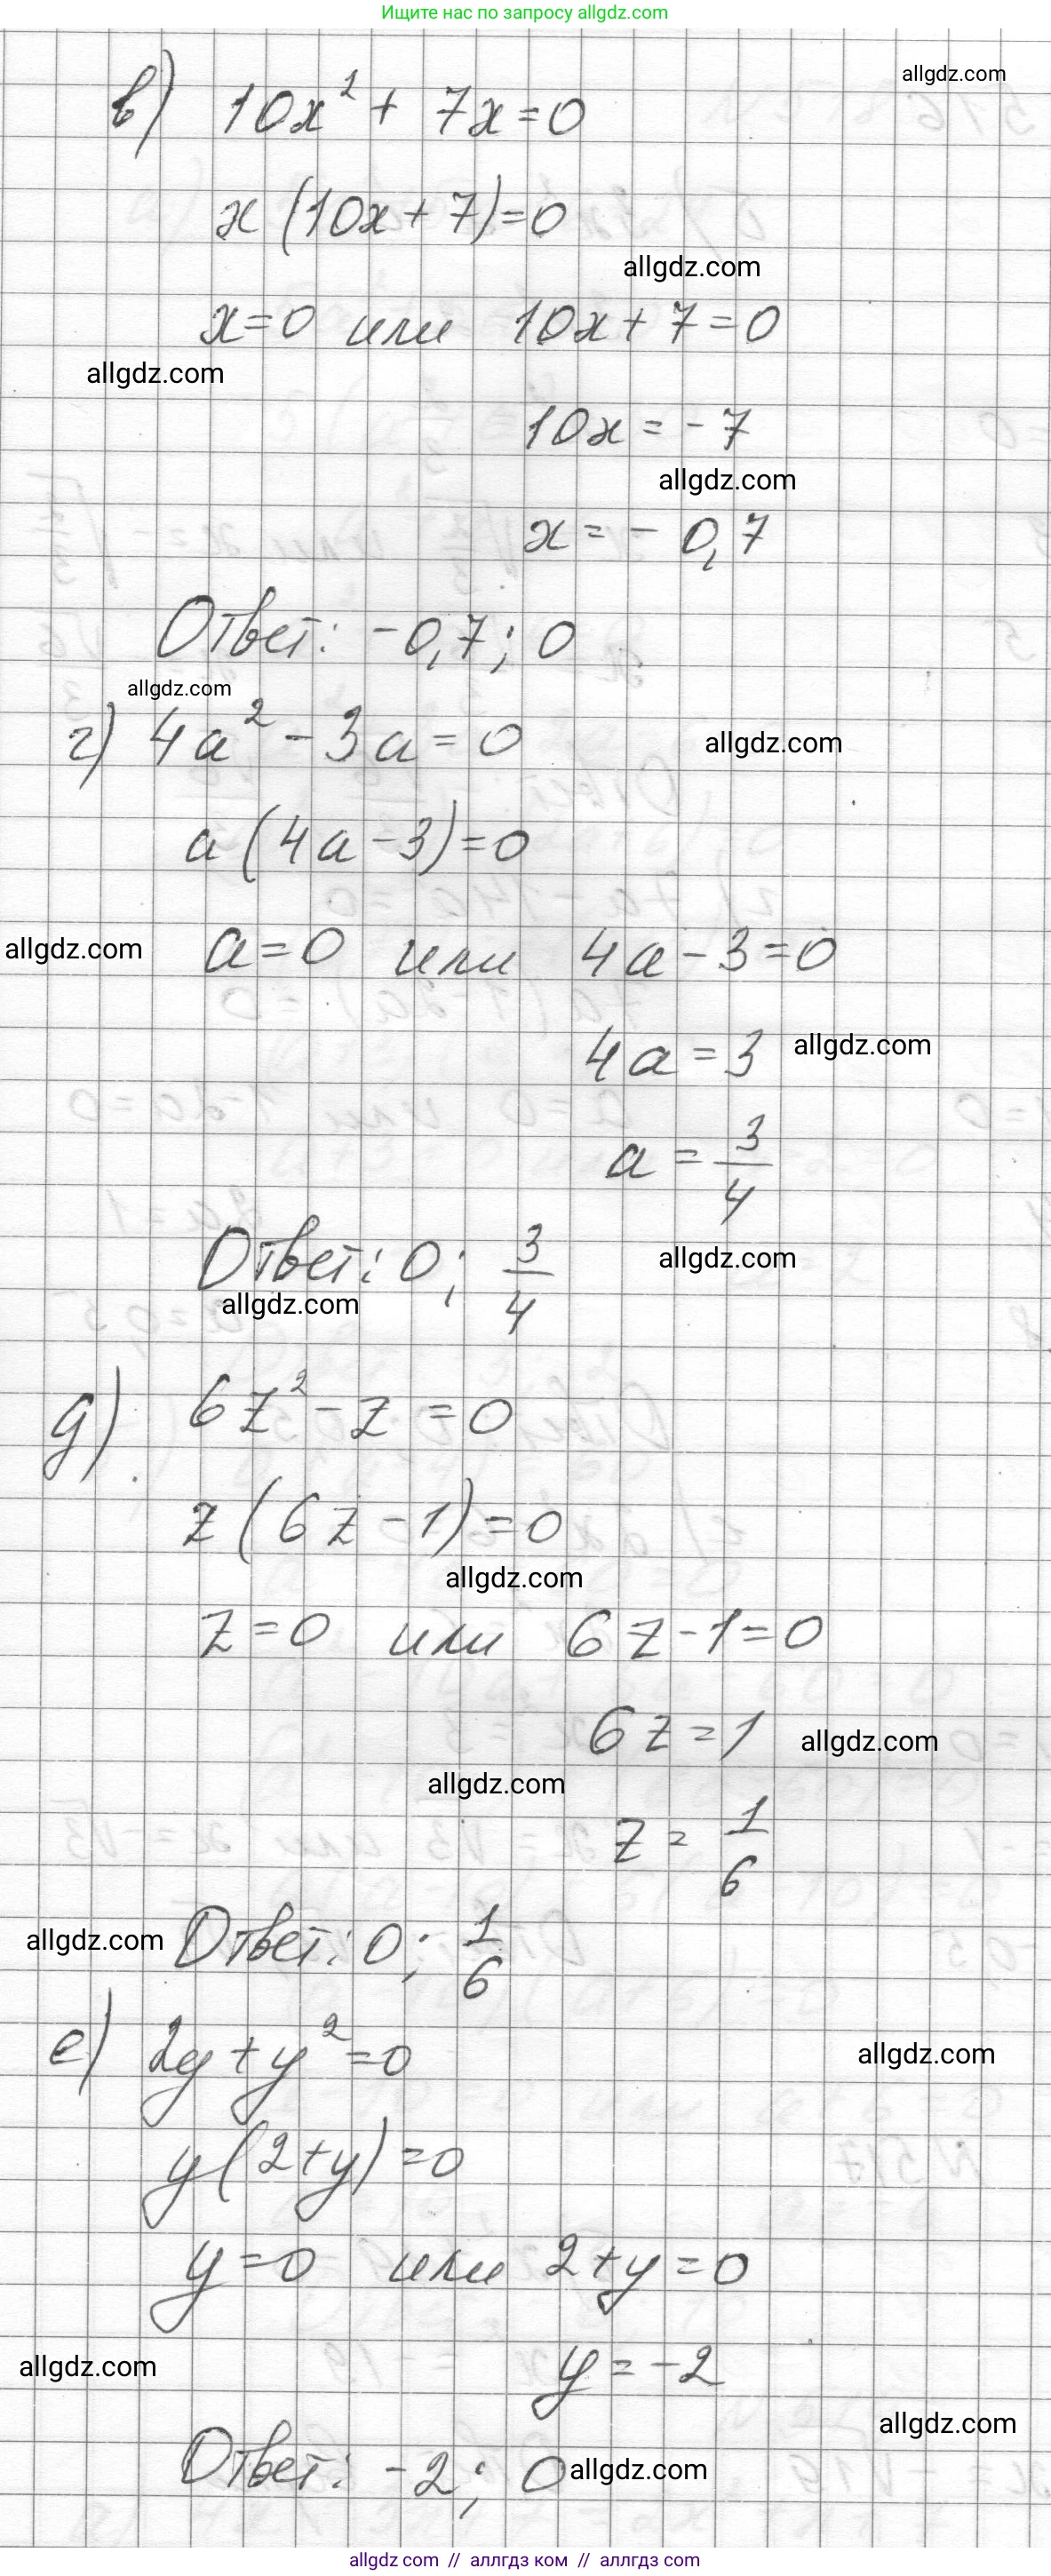 Ищите нас по запросу allgdz.com
allgdz.com
в) 10x² + 7x = 0
x(10x + 7) = 0
allgdz.com
x = 0 или 10x + 7 = 0
allgdz.com
10x = -7
allgdz.com
x = -0,7
Ответ: -0,7; 0
allgdz.com
г) 4a² - 3a = 0
allgdz.com
a(4a - 3) = 0
allgdz.com
a = 0 или 4a - 3 = 0
4a = 3
allgdz.com
a = 3/4
Ответ: 0; 3/4
allgdz.com
allgdz.com
д) 6z² - z = 0
z(6z - 1) = 0
allgdz.com
z = 0 или 6z - 1 = 0
6z = 1
allgdz.com
allgdz.com
z = 1/6
allgdz.com
Ответ: 0; 1/6
е) 2y + y² = 0
allgdz.com
y(2 + y) = 0
y = 0 или 2 + y = 0
allgdz.com
y = -2
allgdz.com
Ответ: -2; 0
allgdz.com
allgdz.com // аллгдз ком // allgdz.com